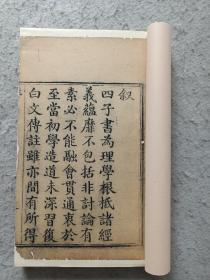 叙
四子書為理學根抵諸經
義蘊靡不包括非討論有
素必不能融會貫通衷於
至當初學造道未深習復
白文傳註雖亦間有所得